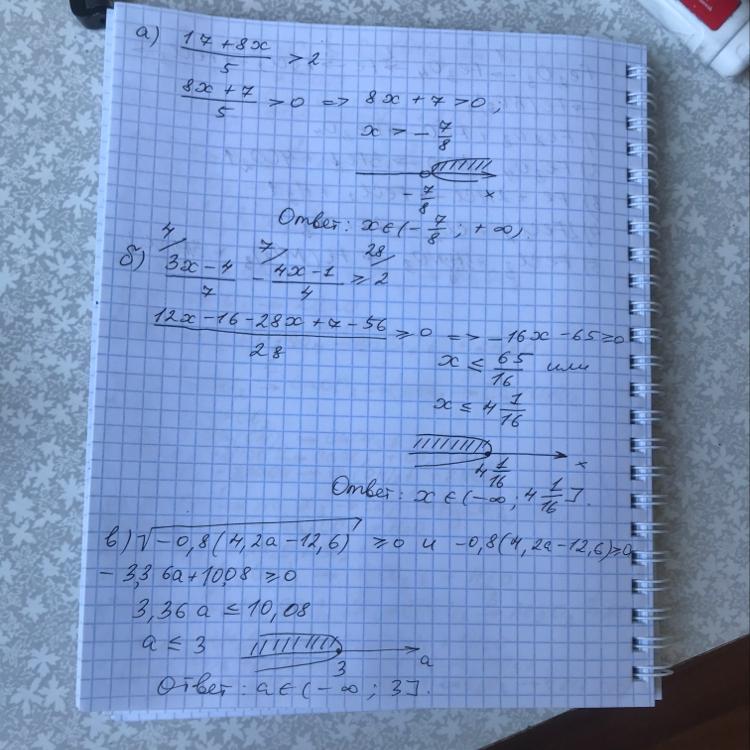 а) (17 + 8x)/5 > 2
(8x + 7)/5 > 0 => 8x + 7 > 0;
x > -7/8
-7/8 x
Ответ: x∈(-7/8; +∞).
4/ 7/ 28/
б) (3x - 4)/7 - (4x - 1)/4 ≥ 2
(12x - 16 - 28x + 7 - 56)/28 ≥ 0 => -16x - 65 ≥ 0
x ≤ 65/16 или
x ≤ 4 1/16
4 1/16 x
Ответ: x∈(-∞; 4 1/16].
в) √(-0,8(4,2a - 12,6)) ≥ 0 и -0,8(4,2a - 12,6) ≥ 0
- 3,36a + 10,08 ≥ 0
3,36a ≤ 10,08
a ≤ 3
3 a
Ответ: a∈(-∞; 3].